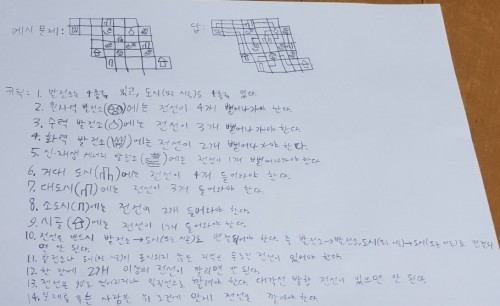 예시 문제: 답:
규칙: 1. 발전소는 4종류 있고, 도시(또는 시골)도 4종류 있다.
2. 원자력 발전소( )에는 전선이 4개 뻗어나가야 한다.
3. 수력 발전소( )에는 전선이 3개 뻗어나가야 한다.
4. 화력 발전소( )에는 전선이 2개 뻗어나가야 한다.
5. 신·재생 에너지 발전소( )에는 전선이 1개 뻗어나가야 한다.
6. 거대 도시( )에는 전선이 4개 들어와야 한다.
7. 대도시( )에는 전선이 3개 들어와야 한다.
8. 소도시( )에는 전선이 2개 들어와야 한다.
9. 시골( )에는 전선이 1개 들어와야 한다.
10. 전선은 반드시 발전소→도시(또는 시골)로 연결되어야 한다. 즉 발전소→발전소, 도시(또는 시골)→도시(또는 시골)로 연결되
면 안 된다.
11. 발전소나 도시(또는 시골)가 표시되지 않은 칸에는 무조건 전선이 있어야 한다.
12. 한 칸에 2개 이상의 전선이 깔리면 안 된다.
13. 전선은 90도 꺾이거나 일직선으로 깔려야 한다. 대각선 방향 전선이 있으면 안 된다.
14. 문제를 푸는 사람은 위 조건에 맞게 전선을 깔아야 한다.